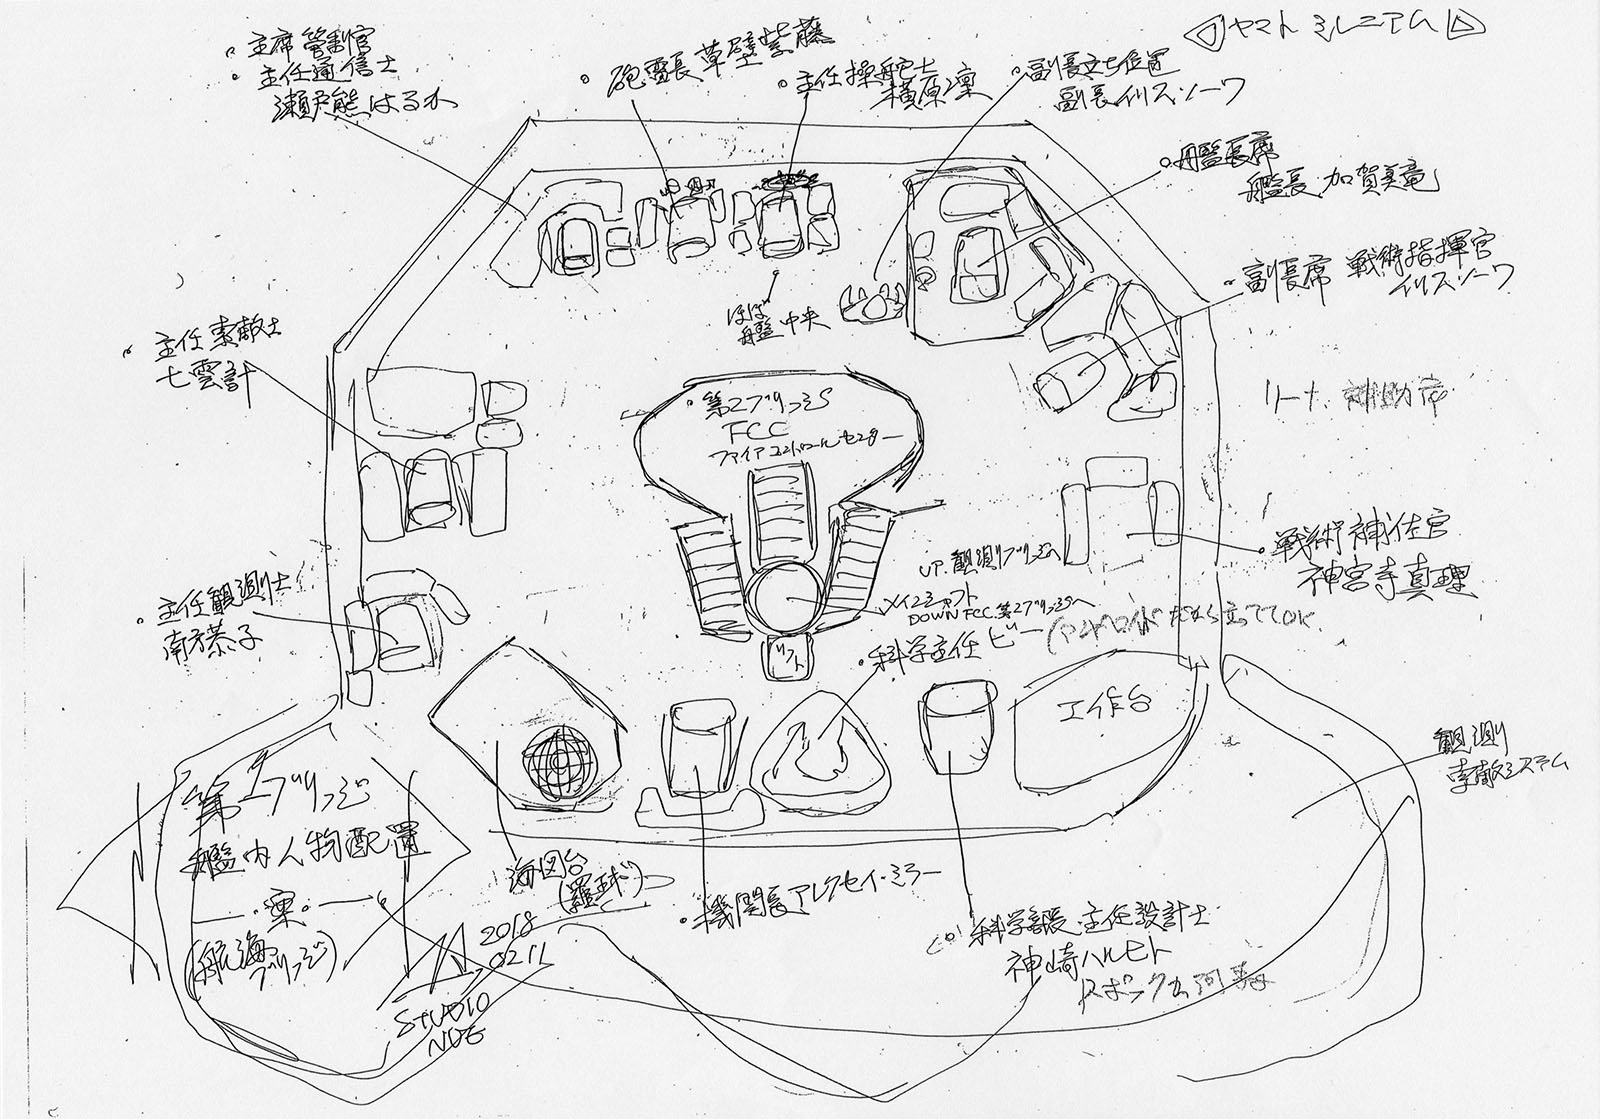 ヤマトミレニアム
・主席管制官
・主任通信士
瀬戸熊はる水
・砲雷長 草壁紫藤
・主任操舵士
横原凜
・副長立ち位置
副長イリス・ソーワ
・艦長席
艦長 加賀真竜
・副長席 戦術指揮官
イリス・ソーワ
ほぼ
艦中央
・主任索敵士
七雲計
・第2ブリッジ
FCC
ファイアコントロールセンター
補助席
・戦術補佐官
神宮寺真理
UP.観測ブリッジへ
メインシャフト
DOWN FCC.第2ブリッジへ
・主任観測士
南方恭子
リフト
・科学主任ビー(アンドロイドだから立ってOK
工作台
観測
索敵システム
第1ブリッジ
艦内人物配置
・案・
(航海ブリッジ)
海図台
(羅球)
・機関長アレクセイ・ミラー
科学部長・主任設計士
神崎ハルヒト
2018
0211
STUDIO
NUE